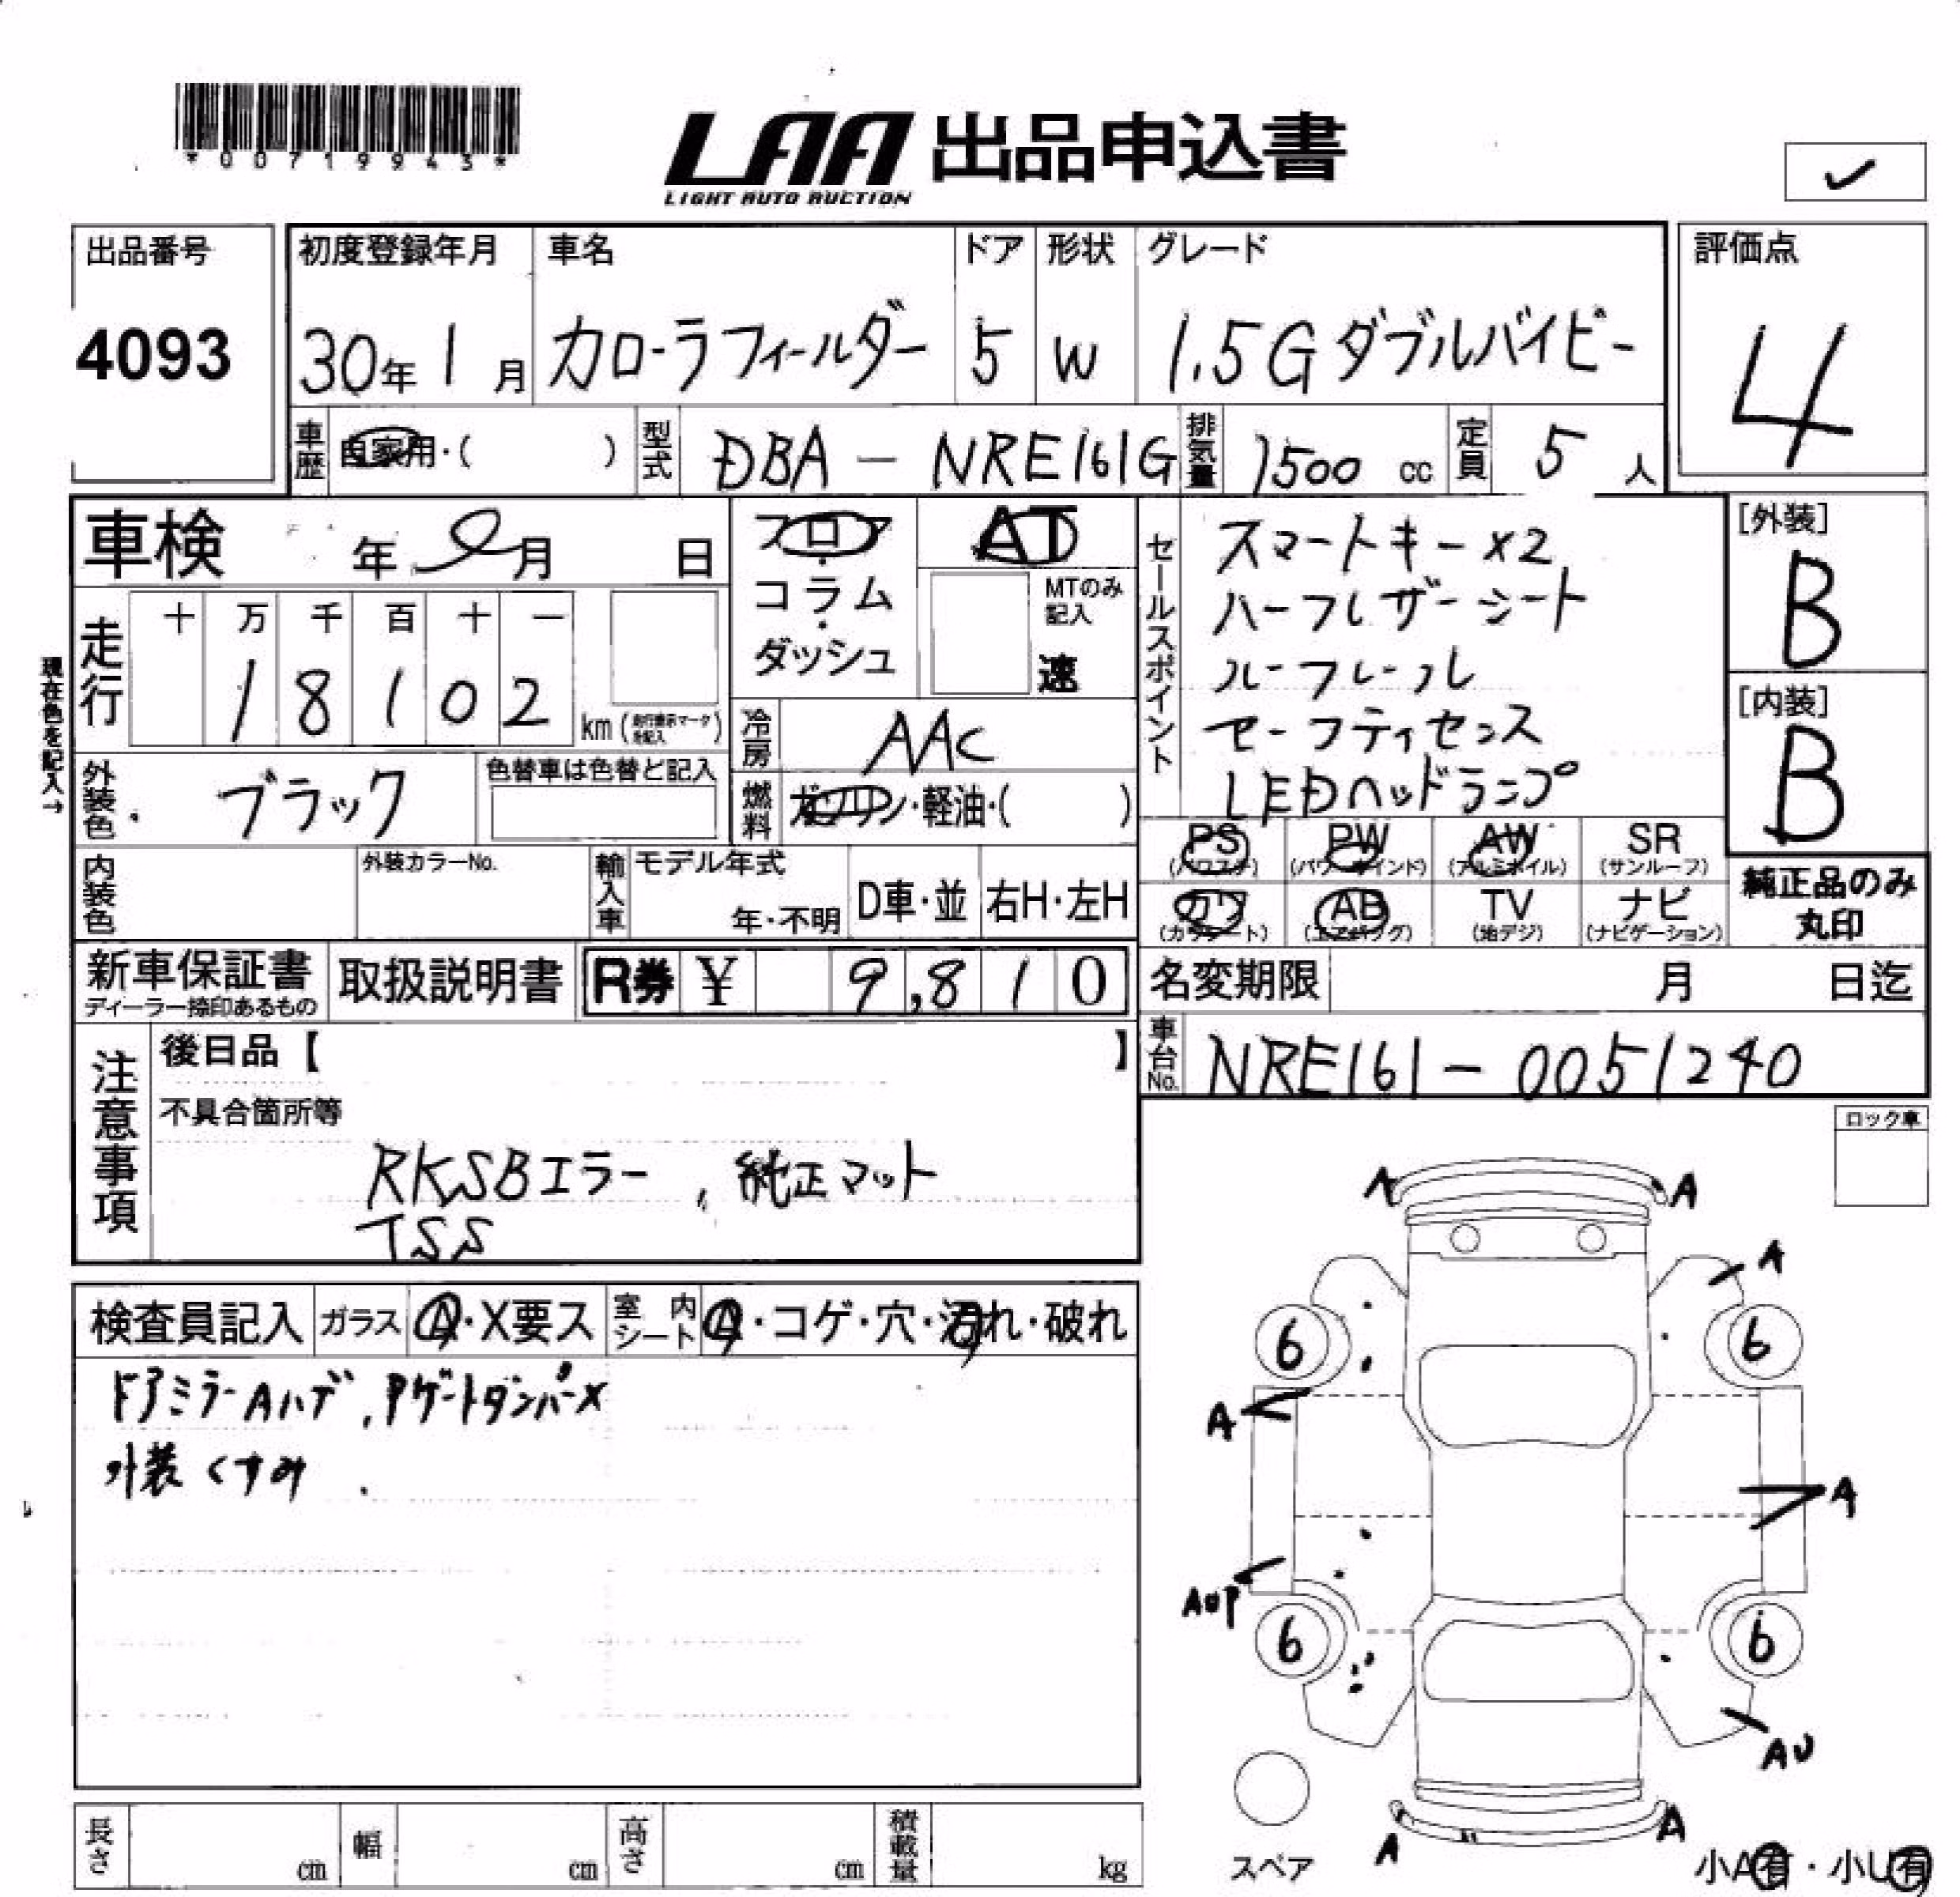 *00719943*
LAA 出品申込書
LIGHT AUTO AUCTION
出品番号
4093
初度登録年月
30年 1月
車名
カローラフィールダー
ドア
5
形状
W
グレード
1.5G ダブルバイビー
評価点
4
車歴
自家用・( )
型式
DBA - NRE161G
排気量
1500 cc
定員
5 人
車検
年 月 日
フロア・コラム・ダッシュ
AT
MTのみ記入
速
セールスポイント
スマートキー×2
ハーフレザーシート
ルーフレール
セーフティセンス
LEDヘッドランプ
[外装]
B
[内装]
B
現在色を記入→
走行
十 万 千 百 十 一
1 8 1 0 2
km
冷房
AAC
外装色
ブラック
色替車は色替ど記入
燃料
ガソリン・軽油・( )
内装色
外装カラーNo.
輸入車
モデル年式
年・不明
D車・並
右H・左H
PS (パワステ)
PW (パワーウインド)
AW (アルミホイル)
SR (サンルーフ)
カワ (カワシート)
AB (エアバッグ)
TV (地デジ)
ナビ (ナビゲーション)
純正品のみ
丸印
新車保証書
ディーラー捺印あるもの
取扱説明書
R券 ¥ 9,810
名変期限
月 日迄
車台No.
NRE161-0051240
注意事項
後日品【 】
不具合箇所等
RKSBエラー、純正マット
TSS
ロック車
検査員記入
ガラス
A・X要ス
室内シート
A・コゲ・穴・汚れ・破れ
ドアミラーAハゲ, Pゲートダンパー×
外装くすみ
A A
A
6 6
A
A
AUP
6 6
AU
A A
スペア
小A有・小U有
長さ cm
幅 cm
高さ cm
積載量 kg